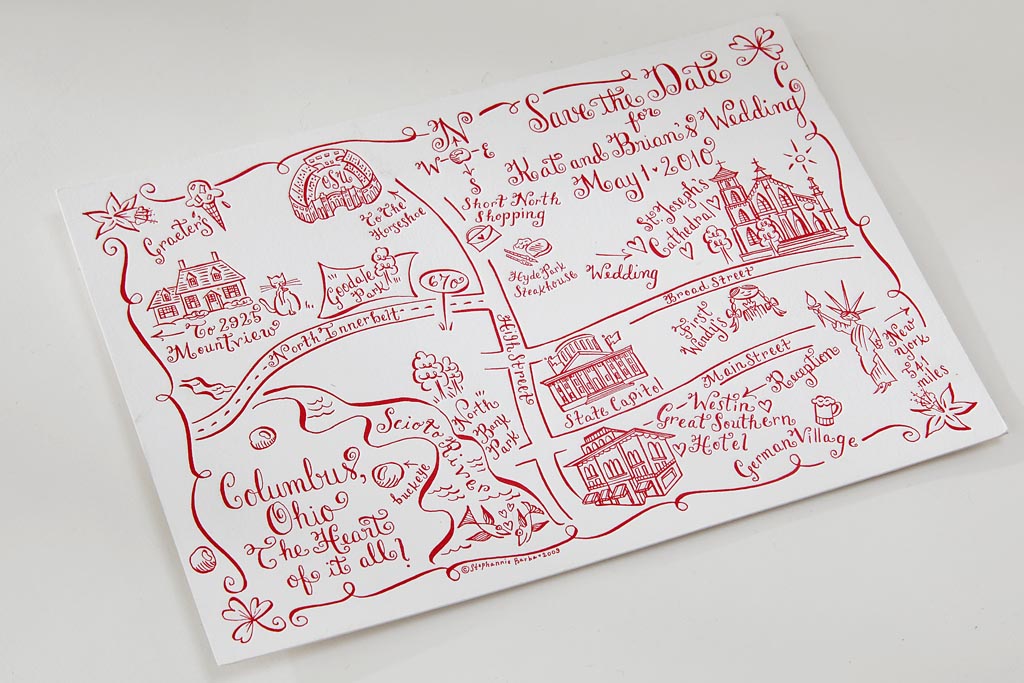 Save the Date
for
Kat and Brian's Wedding
May 1 • 2010
N
W E
S
OSU
To The
Horseshoe
Graeter's
Short North
Shopping
St. Joseph's
Cathedral
Hyde Park
Steakhouse
Wedding
Goodale
Park
670
To 2925
Mountview
North Innerbelt
High Street
Broad Street
First
Wendy's
State Capitol
Main Street
New
York
541
miles
Reception
Westin
Great Southern
Hotel
German Village
Scioto River
North
Bank
Park
buckeye
Columbus,
Ohio
The Heart
of it all!
©Stephannie Barba•2009